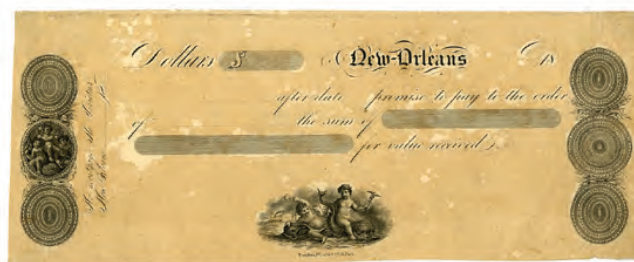 Dollars $ New-Orleans 18
after date promise to pay to the order
of the sum of
for value received